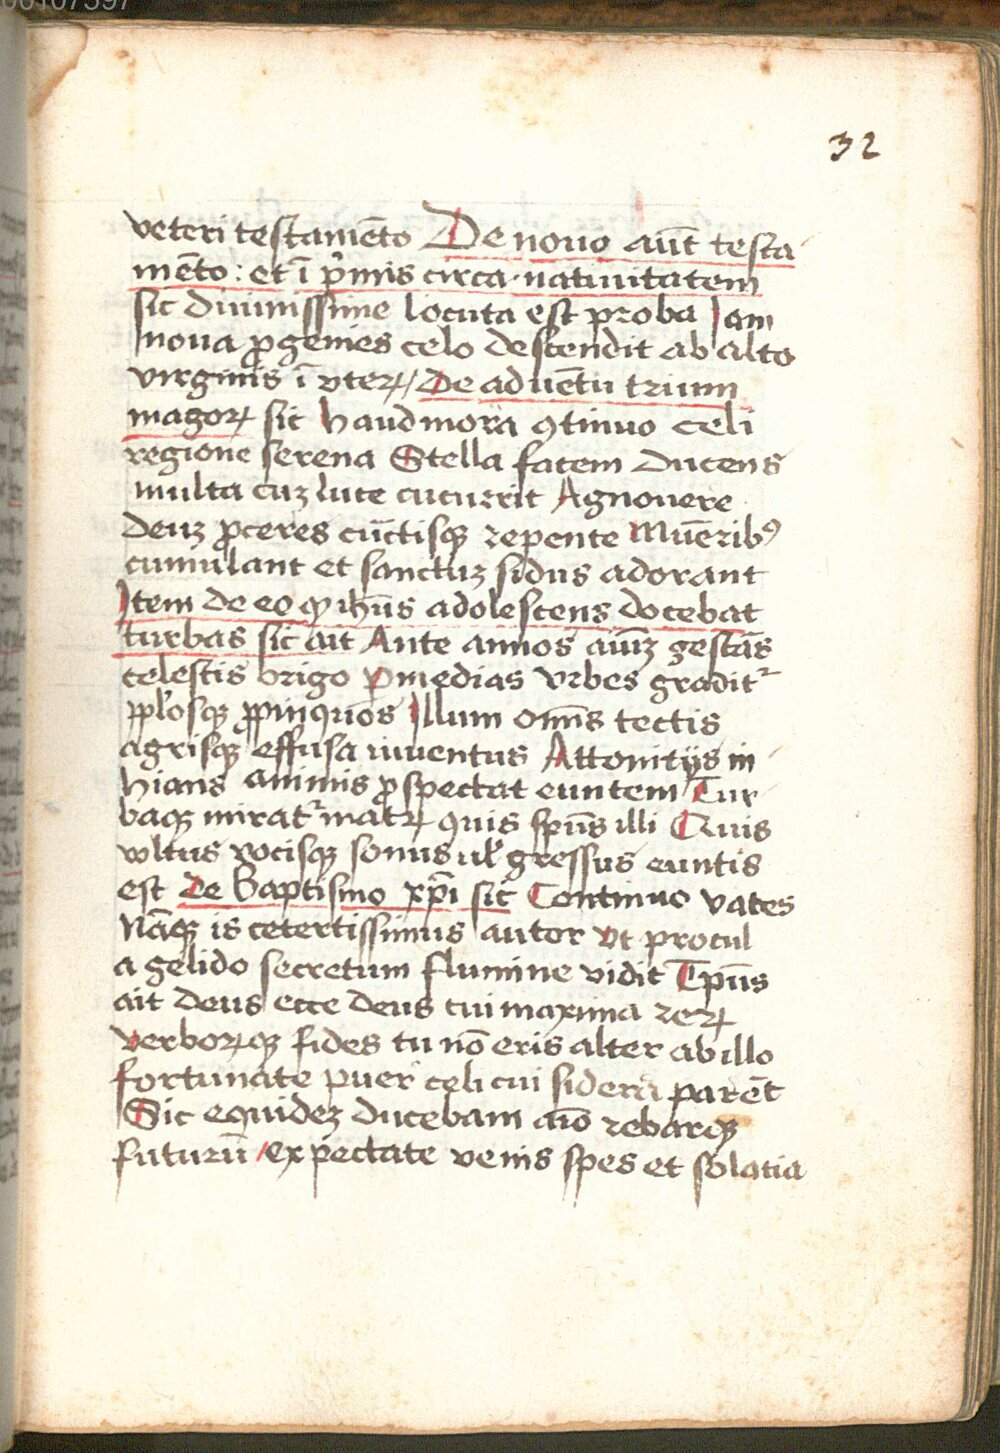 00107597
32
veteri testamēto De nouo aūt testa
mēto: et ī p̄mis circa natiuitatem
sic diuinissime locuta est proba Jam
noua ꝓgenies celo descendit ab alto
virginis ī vteꝝ / De aduētu trium
magoꝝ sic Haud mora ꝯtinuo celi
regione serena Stella facem ducens
multa cuꝫ luce cucurrit Agnouere
deuꝫ ꝓceres cūctisqꝫ repente Muēribꝰ
cumulant et sanctuꝫ sidus adorant
Item de eo ꝙ ihūs adolescens docebat
turbas sic ait Ante annos aīuꝫ gestās
celestis origo ꝑ medias vrbes gradit᷑
pplosqꝫ ꝓpinquos Illum om̄s tectis
agrisqꝫ effusa iuuentus Attonitijs in
hians animis ꝓspectat euntem Tur
baqꝫ mirat᷑ matꝝ quis sp̄us illi Quis
vultus vocisqꝫ sonus ul' gressus euntis
est De baptismo xp̄i sic Continuo vates
Nāqꝫ is certissimus autor vt procul
a gelido secretum flumine vidit Tp̄us
ait deus ecce deus cui maxima reꝝ
verboꝝqꝫ fides tu nō eris alter ab illo
fortunate puer celi cui sidera parēt
Sic equideꝫ ducebam aīo rebarqꝫ
futurū expectate venis spes et solatia